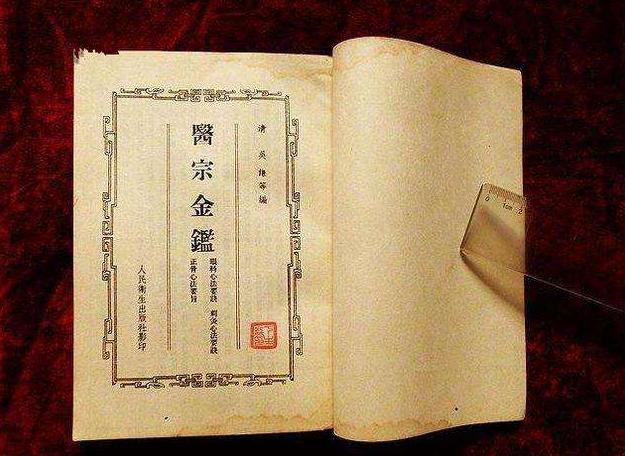 清 吳謙等編
醫宗金鑑
眼科心法要訣 刺灸心法要訣
正骨心法要旨
人民衛生出版社影印
0 1cm 2